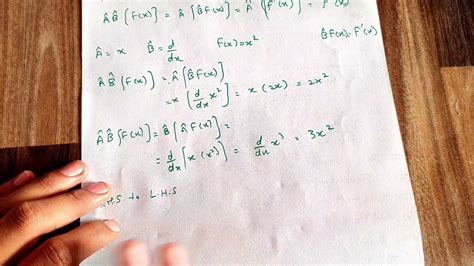 ÂB̂[F(x)] = Â[B̂F(x)] = Â[F'(x)] = F'(x)
Â = x B̂ = d/dx F(x)=x² B̂F(x)=F'(x)
ÂB̂[F(x)] = Â[B̂F(x)]
= x[d/dx x²] = x(2x) = 2x²
ÂB̂[F(x)] = B̂[ÂF(x)] =
= d/dx[x(x²)] = d/dx x³ = 3x²
H.S to L.H.S